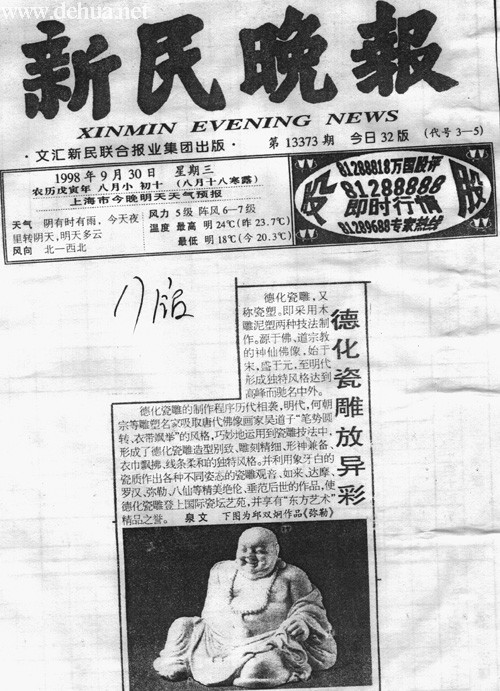 www.dehua.net
新民晚報
XINMIN EVENING NEWS
·文汇新民联合报业集团出版· 第13373期 今日32版 (代号3—5)
1998年9月30日 星期三
农历戊寅年 八月小 初十 (八月十八寒露)
上海市今晚明天天气预报
天气 阴有时有雨,今天夜
里转阴天,明天多云
风向 北—西北
风力 5级 阵风6—7级
温度 最高 明24℃(昨23.7℃)
最低 明18℃(今20.3℃)
股
81288818万国股评
81288888
即时行情
81289688专家热线
股
德化瓷雕放异彩
德化瓷雕,又
称瓷塑。即采用木
雕泥塑两种技法制
作。源于佛、道宗教
的神仙佛像,始于
宋,盛于元,至明代
形成独特风格达到
高峰而驰名中外。
德化瓷雕的制作程序历代相袭,明代,何朝
宗等雕塑名家吸取唐代佛像画家吴道子“笔势圆
转、衣带飘举”的风格,巧妙地运用到瓷雕技法中,
形成了德化瓷雕造型别致、雕刻精细、形神兼备、
衣巾飘拂、线条柔和的独特风格。并利用象牙白的
瓷质作出各种不同姿态的瓷雕观音、如来、达摩、
罗汉、弥勒、八仙等精美绝伦、垂范后世的作品,使
德化瓷雕登上国际瓷坛艺苑,并享有“东方艺术”
精品之誉。 泉文 下图为邱双炯作品《弥勒》